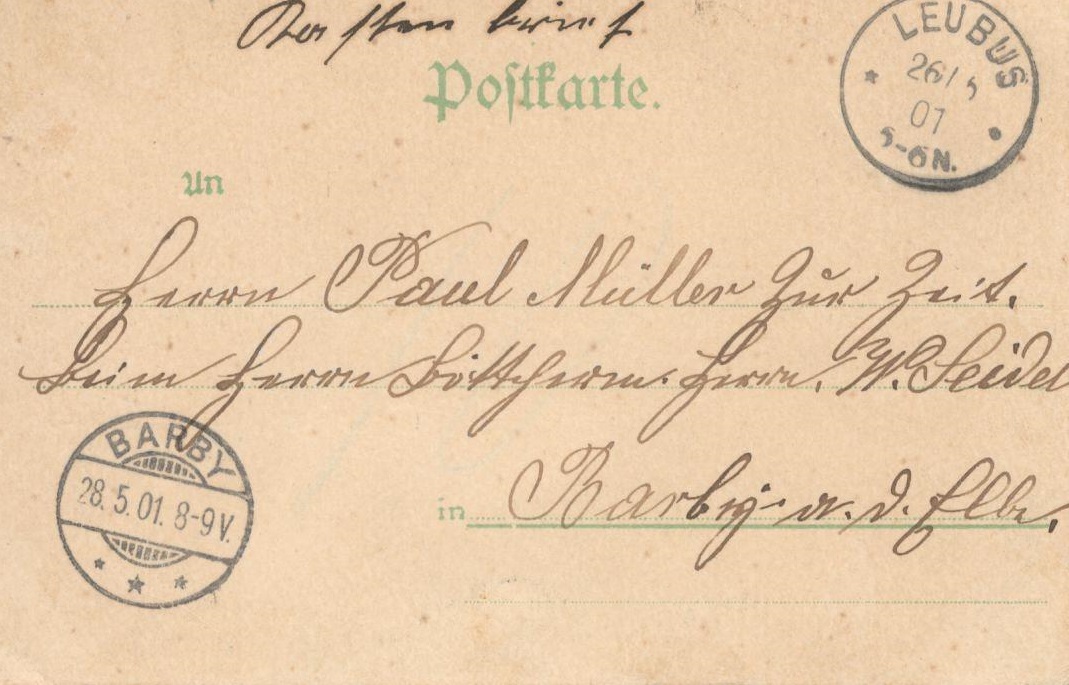 Kastenbrief
Postkarte.
LEUBUS
26/5
01
5-6N.
An
Herrn Paul Müller zur Zeit.
Beim Herrn Böttcherm. Herrn. W. Seidel
BARBY
28.5.01. 8-9V.
in Barby a. d. Elbe.